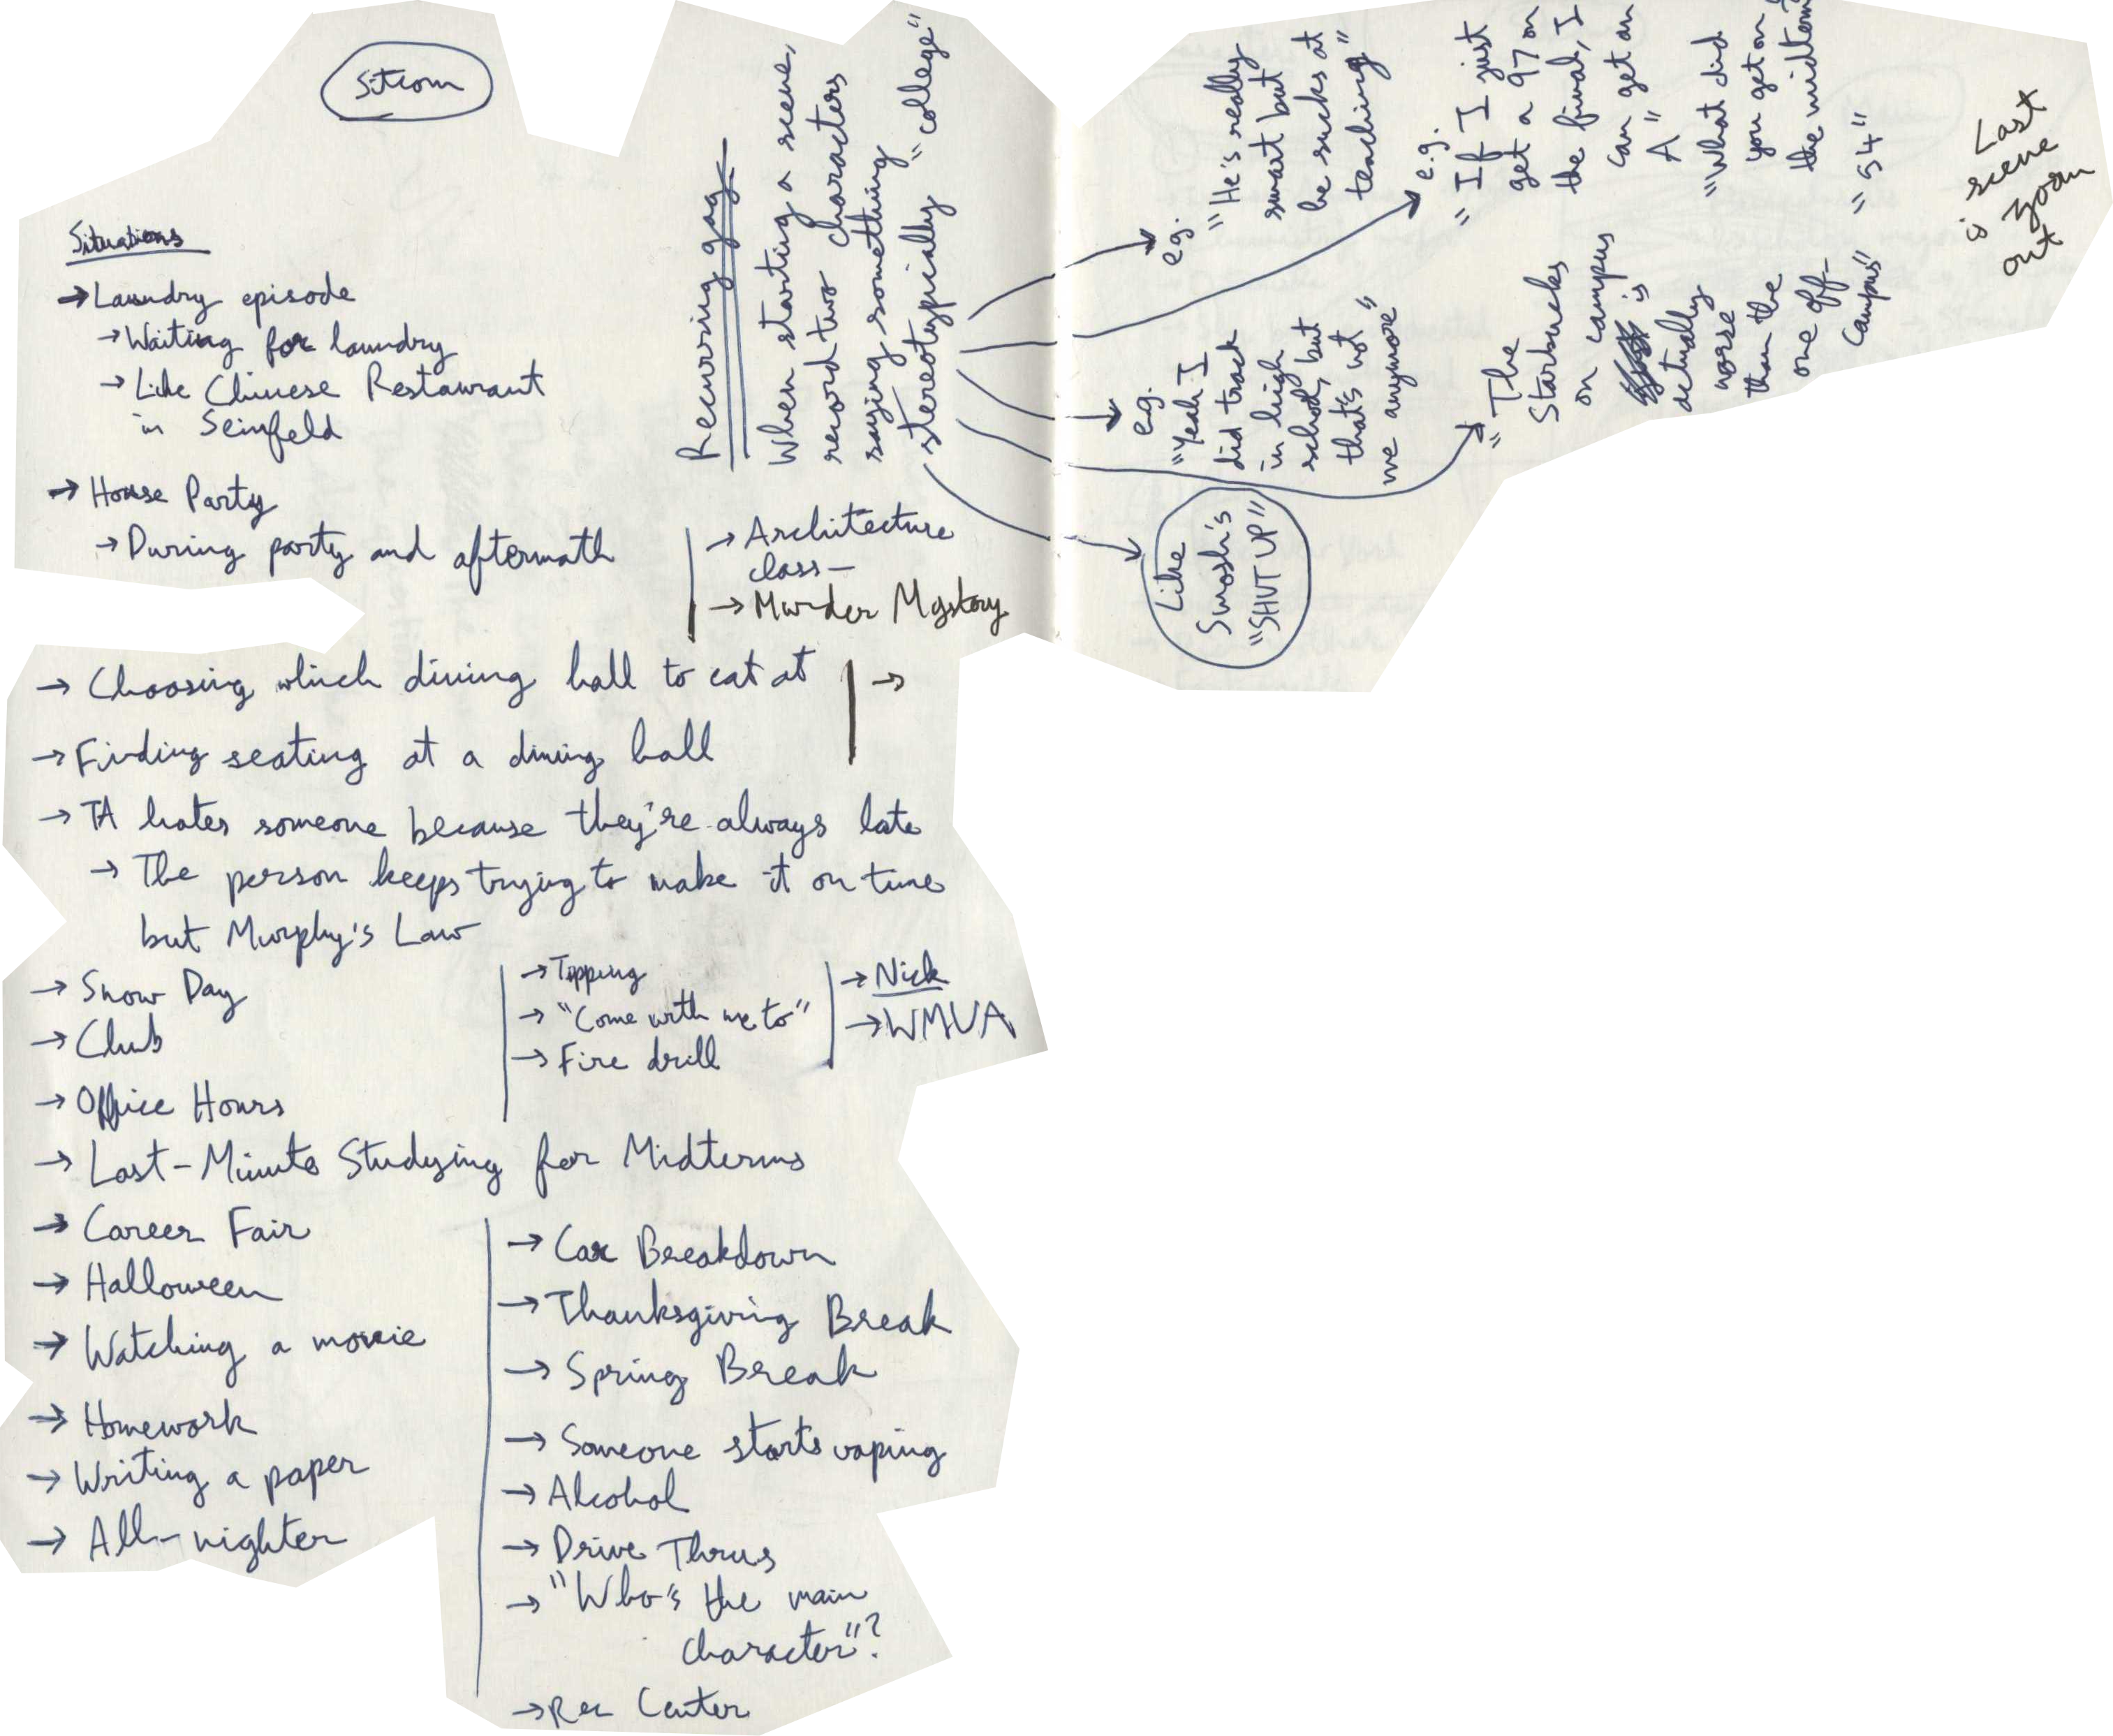 Sitcom
Situations
→ Laundry episode
→ Waiting for laundry
→ Like Chinese Restaurant
in Seinfeld
→ House Party
→ During party and aftermath
→ Architecture
class –
→ Murder Mystery
→ Choosing which dining hall to eat at
→
→ Finding seating at a dining hall
→ TA hates someone because they're always late
→ The person keeps trying to make it on time
but Murphy's Law
→ Snow Day
→ Club
→ Office Hours
→ Topping
→ "Come with me to"
→ Fire drill
→ Nick
→ WMUA
→ Last-Minute Studying for Midterms
→ Career Fair
→ Halloween
→ Watching a movie
→ Homework
→ Writing a paper
→ All-nighter
→ Car Breakdown
→ Thanksgiving Break
→ Spring Break
→ Someone starts vaping
→ Alcohol
→ Drive Thrus
→ "Who's the main
character"?
→ Rec Center
Recurring gag
When starting a scene,
record two characters
saying something
stereotypically "college"
e.g.
"He's really
smart but
he sucks at
teaching"
e.g.
"If I just
get a 97 on
the final, I
can get an
A"
"What did
you get on
the midterm?
"54"
e.g.
"Yeah I
did track
in high
school, but
that's not
me anymore"
"The
Starbucks
on campus
is
actually
worse
than the
one off-
campus"
Like
Smosh's
"SHUT UP"
Last
scene
is zoom
out